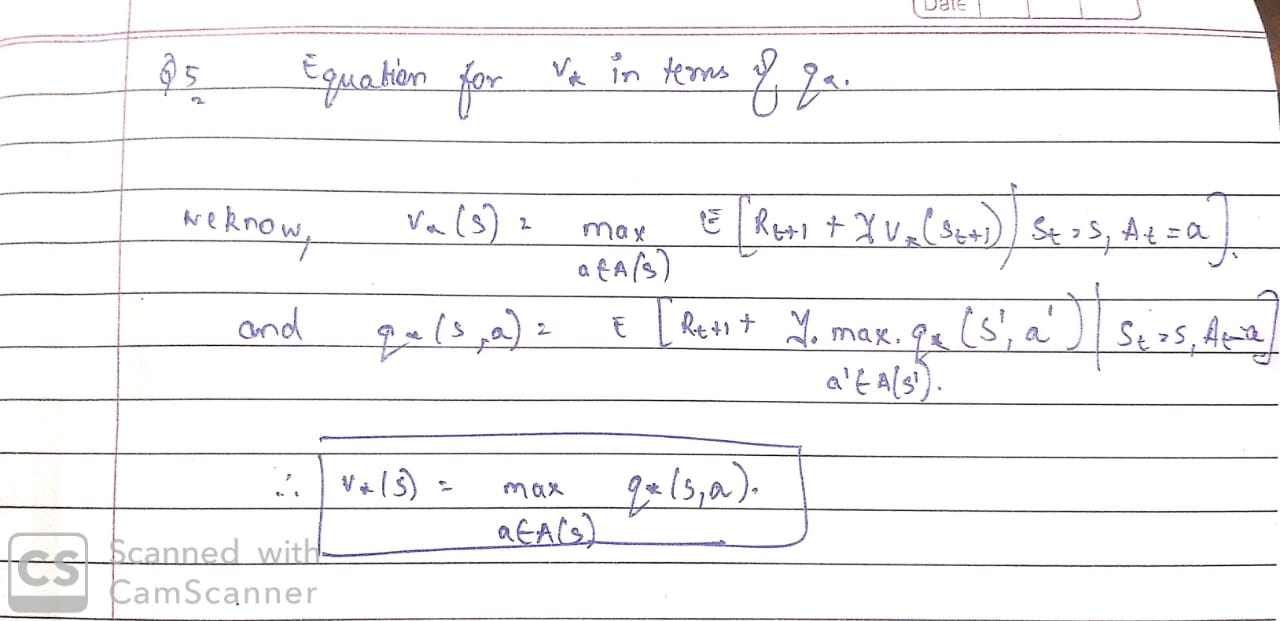 Date
Q5 Equation for v* in terms of q*.
We know, v*(s) = max E [R_{t+1} + γ v*(S_{t+1}) | S_t = s, A_t = a].
a ∈ A(s)
and q*(s,a) = E [R_{t+1} + γ. max. q*(S', a') | S_t = s, A_t = a]
a' ∈ A(s').
∴ v*(s) = max q*(s,a).
a ∈ A(s)
CS Scanned with
CamScanner